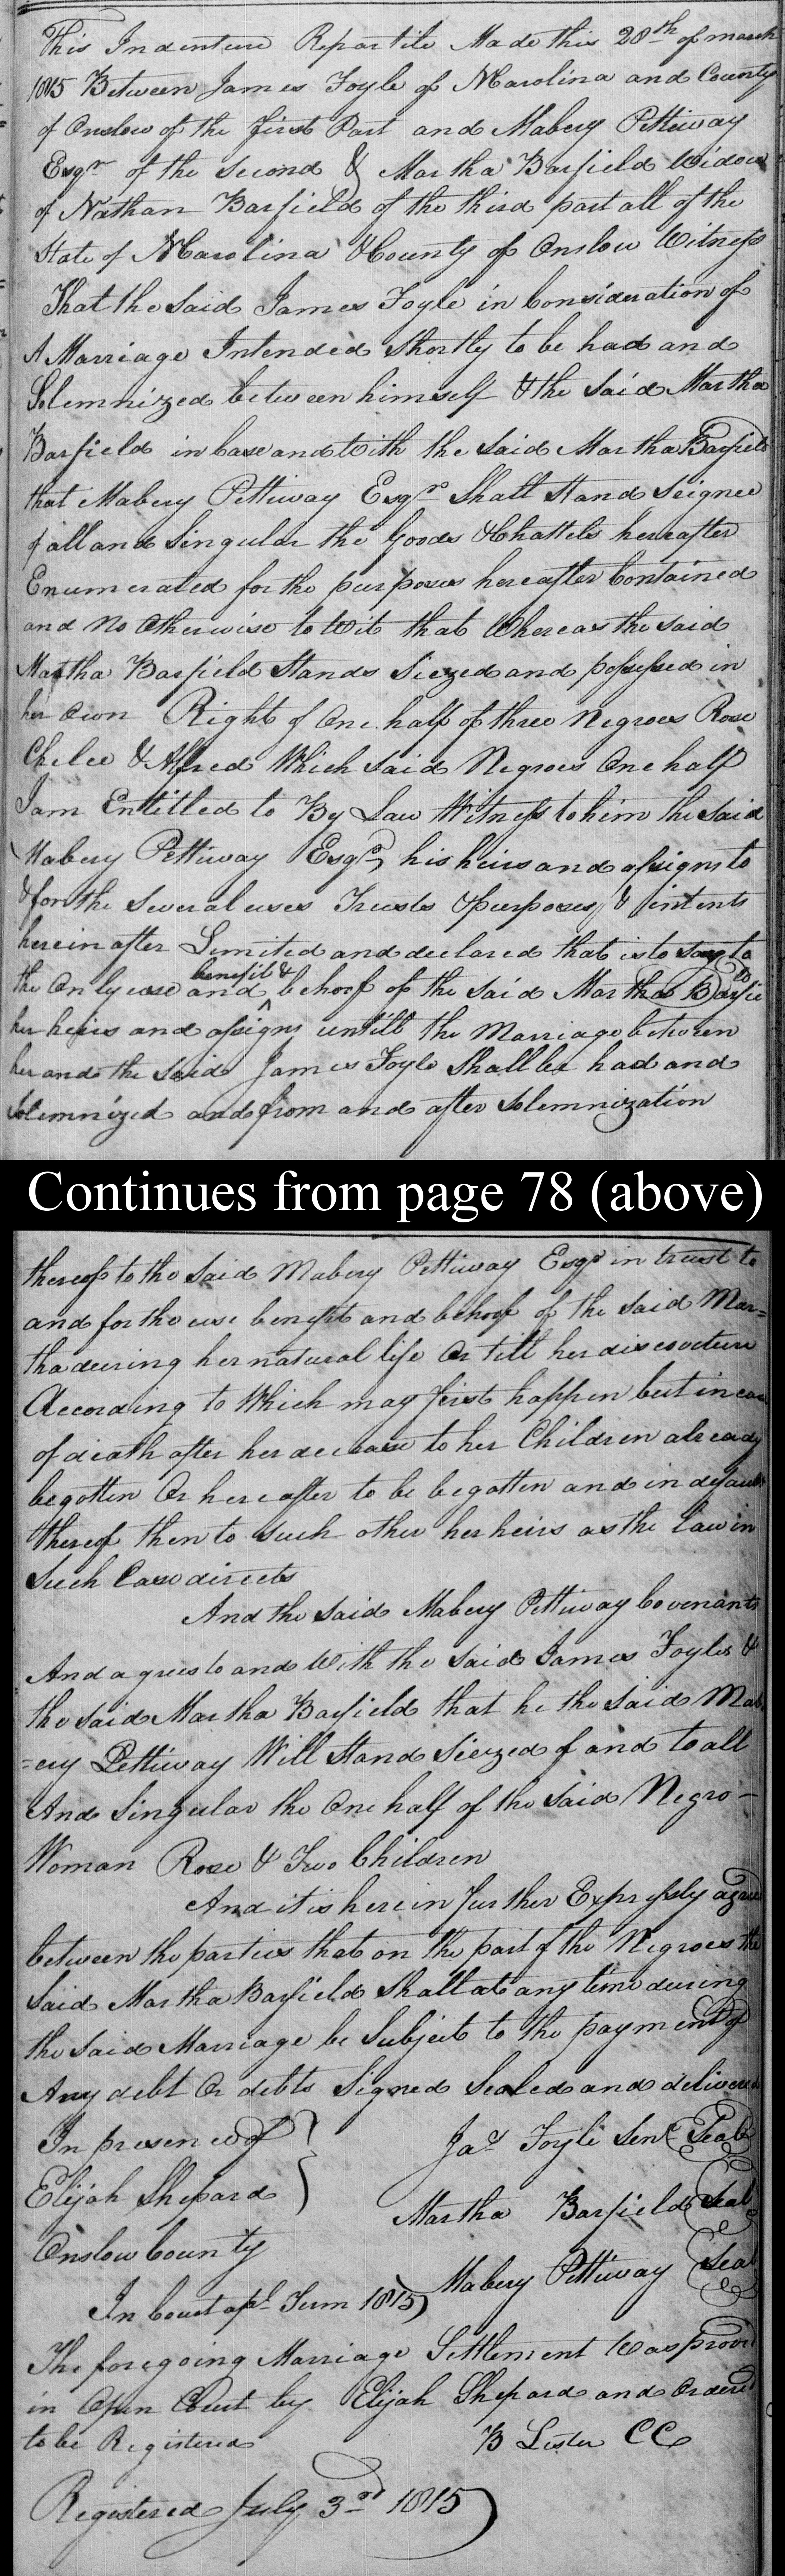 This Indenture Repartite Made this 28th of march
1815 Between James Foyle of NCarolina and County
of Onslow of the first Part and Mabery Pettiway
Esqr of the second & Martha Barfield Widow
of Nathan Barfield of the third part all of the
State of NCarolina & County of Onslow Witness
That the Said James Foyle in Consideration of
A Marriage Intended Shortly to be had and
Solemnized between himself & the Said Martha
Barfield in Case and With the Said Martha Barfield
that Mabery Pettiway Esqr Shall Stand Seignee
of all and Singular the Goods & Chattels hereafter
Enumerated for the purposes hereafter Contained
and No Otherwise to Wit that Whereas the said
Martha Barfield Stands Siezed and possessed in
her Own Right of One half of three Negroes Rose
Chelce & Alfred Which said Negroes One half
I am Entitled to By Law Witness to him the said
Mabery Pettiway Esqr, his heirs and assigns to
& for the Several uses Trusts & purposes, & intents
herein after Limited and declared that is to say to
the Only use and benefit & behoof of the said Martha Barfie
her heirs and assigns untill the Marriage between
her and the Said James Foyle Shall be had and
Solemnized and from and after Solemnization
Continues from page 78 (above)
thereof to the Said Mabery Pettiway Esqr in trust to
and for the use benefit and behoof of the Said Mar=
tha during her natural life Or till her discoverture
According to Which may first happen but in case
of death after her decease to her Children already
begotten Or hereafter to be begotten and in default
thereof then to such other her heirs as the Law in
Such Case directs
And the said Mabery Pettiway Covenants
And agrees to and With the Said James Foyles &
the said Martha Barfield that he the Said Mab
=ery Pettiway Will Stand Siezed of and to all
And Singular the One half of the Said Negro -
Woman Rose & Two Children
And it is herein further Expressly agreed
between the parties that on the part of the Negroes the
Said Martha Barfield Shall at any time during
the Said Marriage be Subject to the payment of
Any debt Or debts Signed Sealed and delivered
In presence of
Jas Foyle Senr Seal
Elijah Shepard
Martha Barfield Seal
Onslow County
Mabery Pettiway Seal
In Court apl Term 1815
The foregoing Marriage Settlement Was proved
in Open Court by Elijah Shepard and Ordered
to be Registered
B Lester CC
Registered July 3rd 1815